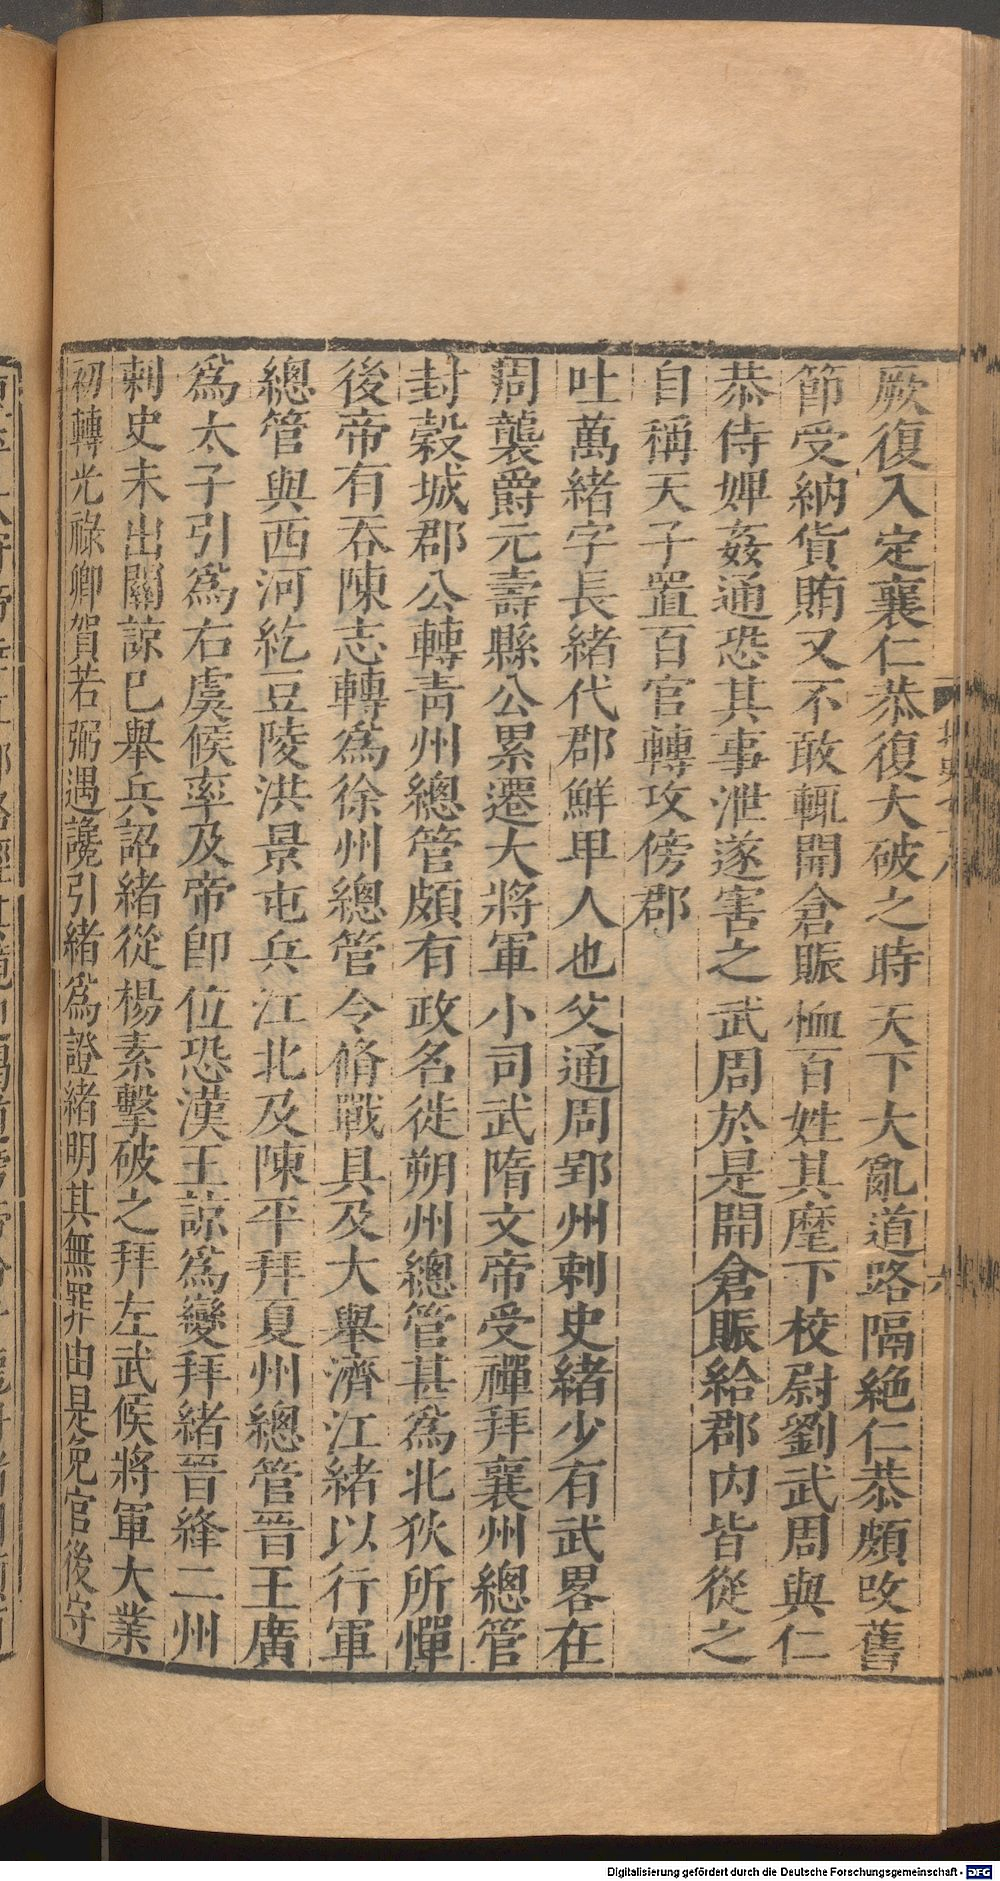 厥復入定襄仁恭復大破之時天下大亂道路隔絶仁恭頗改舊
節受納貨賄又不敢輒開倉賑恤百姓其麾下校尉劉武周與仁
恭侍婢姦通恐其事泄遂害之武周於是開倉賑給郡内皆從之
自稱天子置百官轉攻傍郡
吐萬緒字長緒代郡鮮卑人也父通周郢州刺史緒少有武畧在
周襲爵元壽縣公累遷大將軍小司武隋文帝受禪拜襄州總管
封穀城郡公轉青州總管頗有政名徙朔州總管甚爲北狄所憚
後帝有呑陳志轉爲徐州總管令脩戰具及大舉濟江緒以行軍
總管與西河紇豆陵洪景屯兵江北及陳平拜夏州總管晉王廣
爲太子引爲右虞候率及帝即位恐漢王諒爲變拜緒晉絳二州
刺史未出關諒已舉兵詔緒從楊素擊破之拜左武候將軍大業
初轉光祿卿賀若弼遇讒引緒爲證緒明其無罪由是免官後守
Digitalisierung gefördert durch die Deutsche Forschungsgemeinschaft - DFG